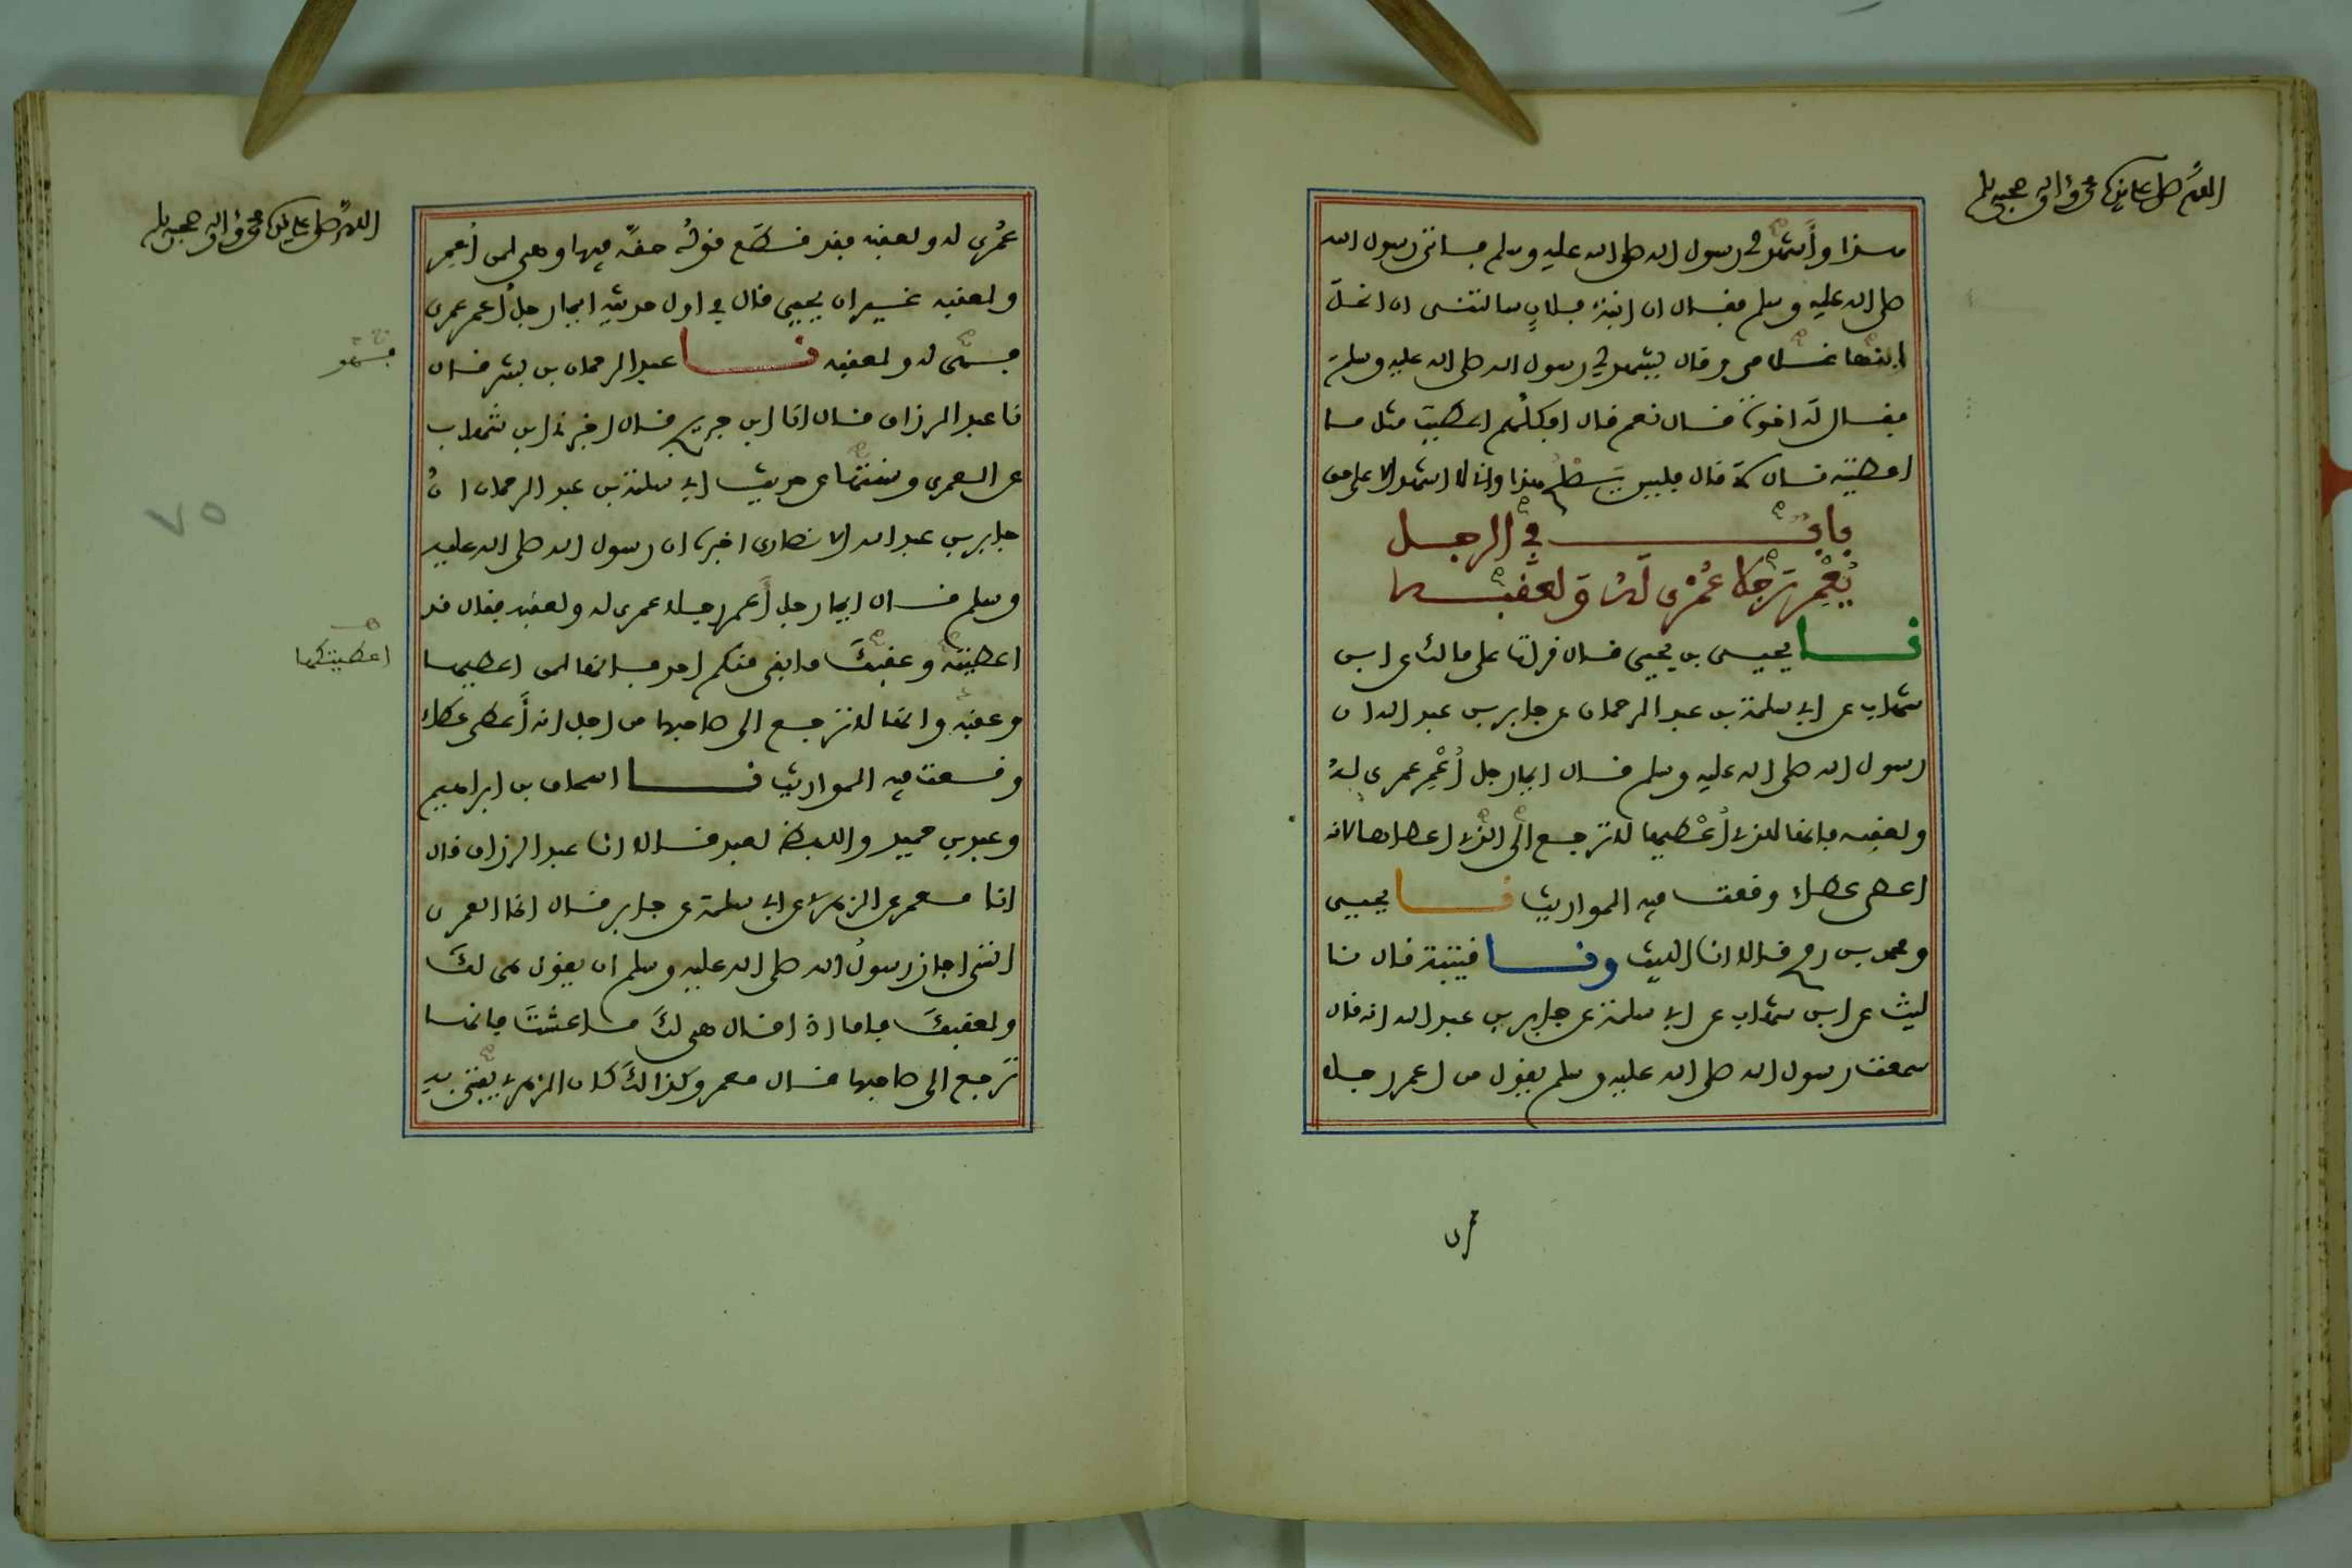 اللهم صل على سيدنا محمد وآله وصحبه وسلم
هذا وأشهد لي رسول الله صلى الله عليه وسلم فاتى رسول الله
صلى الله عليه وسلم فقال ان ابنة فلان سالتني ان انحل
ابنها غلامي وقال يشهد لي رسول الله صلى الله عليه وسلم
فقال له اخوة قال نعم قال افكلهم اعطيت مثل ما
اعطيته قال لا قال فليس يصلح هذا واني لا اشهد الا على حق
باب في الرجل
يُعْمِر رَجلا عُمْرى لَهُ وَلعقبه
نا يحيى بن يحيى قال قرات على مالك عن ابن
شهاب عن ابي سلمة بن عبد الرحمان عن جابر بن عبد الله ان
رسول الله صلى الله عليه وسلم قال ايما رجل أُعْمِر عمرى لهُ
ولعقبه فانها للذي أُعْطيها لا ترجع الى الذي اعطاها لانه
اعطى عطاء وقعت فيه المواريث نا يحيى
ومحمد بن رمح قالا انا الليث ونا قتيبة قال نا
ليث عن ابن شهاب عن ابي سلمة عن جابر بن عبد الله انه قال
سمعت رسول الله صلى الله عليه وسلم يقول من اعمر رجلا
اللهم صل على سيدنا محمد وآله وصحبه وسلم
عُمْرى له ولعقبه فقد قطع قولُه حقَّه فيها وهي لمن أُعمِر
ولعقبه غير ان يحيى قال في اول حديثه ايما رجل أُعمر عمرى
فهي له ولعقبه نا عبد الرحمان بن بشر قال
فهو
نا عبد الرزاق قال انا ابن جريج قال اخبرني ابن شهاب
عن العمرى وسنتها عن حديث ابي سلمة بن عبد الرحمان انّ
جابر بن عبد الله الانصاري اخبره ان رسول الله صلى الله عليه
٧٥
وسلم قال ايما رجل أَعمر رجلا عمرى له ولعقبه فقال قد
اعطيتكها
اعطيته وعقبكَ ما بقي منكم احد فانها لمن اعطيها
وعقبه وانها لا ترجع الى صاحبها من اجل انه أَعطى عطاء
وقعت فيه المواريث نا اسحاق بن ابراهيم
وعبد بن حميد واللفظ لعبد قالا انا عبد الرزاق قال
انا معمر عن الزهري عن ابي سلمة عن جابر قال انما العمرى
التي اجاز رسولُ الله صلى الله عليه وسلم ان يقول هي لكَ
ولعقبكَ فاما اذا قال هي لكَ ما عشتَ فانها
تَرجع الى صاحبها قال معمر وكذالكَ كان الزهري يفتي به